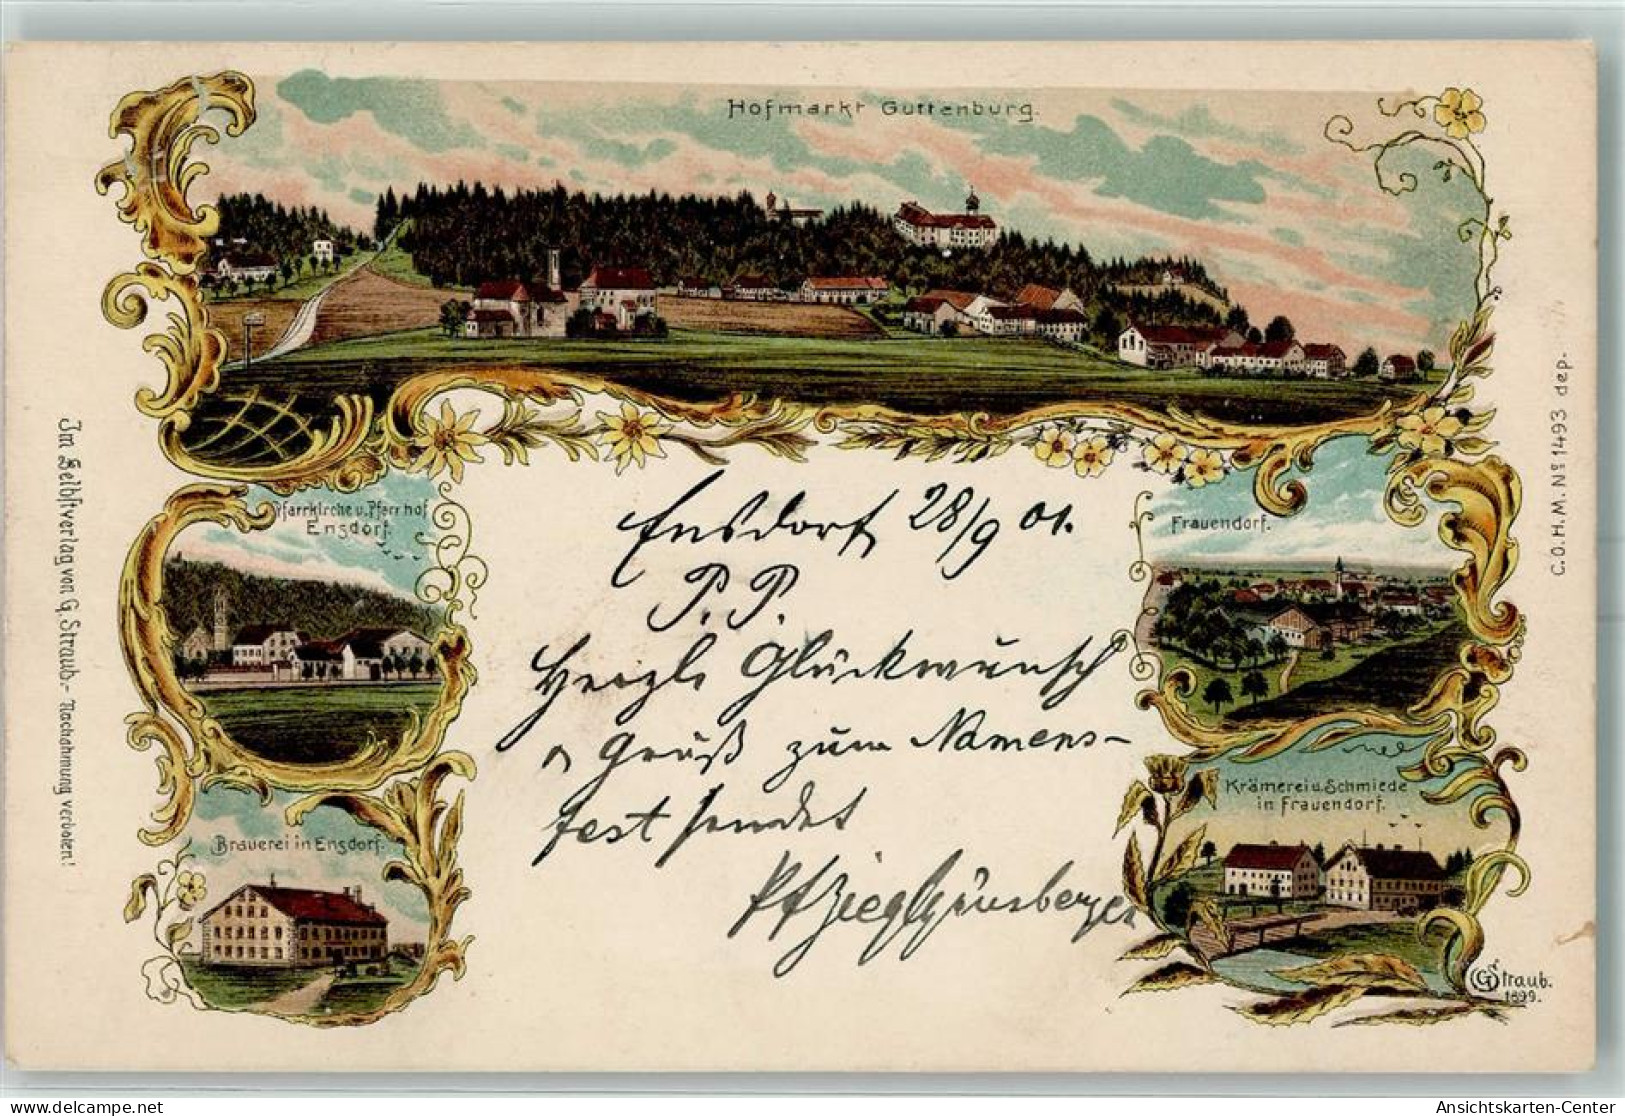 Hofmarkt Guttenburg.
Pfarrkirche u. Pfarrhof
Ensdorf.
Brauerei in Ensdorf.
Ensdorf 28/9 01.
P. P.
Herzl. Glückwunsch
u Gruß zum Namens-
fest sendet
Frauendorf.
Krämerei u. Schmiede
in Frauendorf.
G Straub.
1899.
Im Selbstverlag von G. Straub. - Nachahmung verboten!
C.O.H.M. Nº 1493 dep.
Ansichtskarten-Center